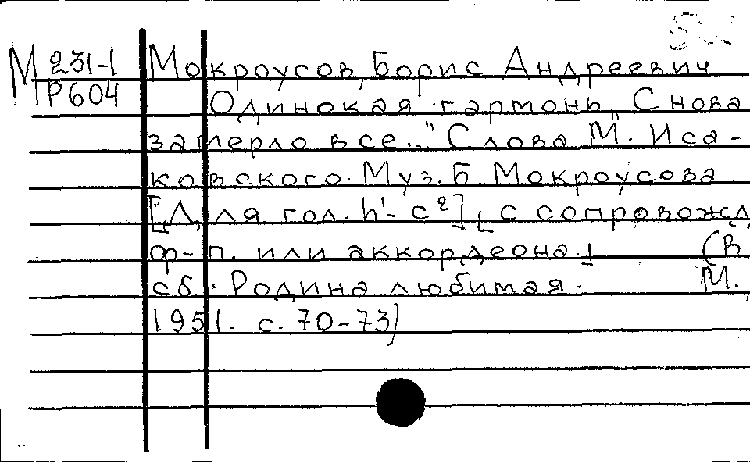 М 231-1
Р604
Мокроусов, Борис Андреевич
Одинокая гармонь "Снова
замерло все..." Слова М. Иса-
ковского. Муз. Б. Мокроусова
[Для гол. h'- c²] [с сопровожд
ф-п. или аккордеона.] (В
сб. Родина любимая. М.,
1951. с. 70-73)